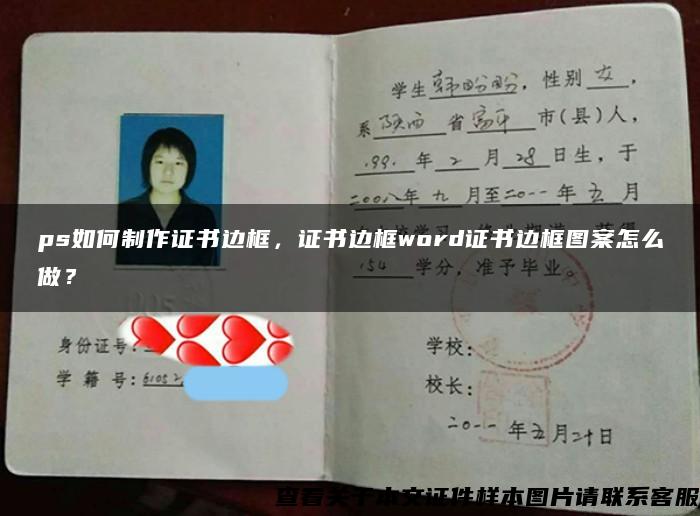 学生韩盼盼，性别女，
系陕西省富平市(县)人，
199.年2月28日生，于
2008年九月至二0一一年五月
ps如何制作证书边框，证书边框word证书边框图案怎么
做？
154学分，准予毕业。
身份证号：
学籍号：61052
学校：
校长：
二0一一年五月二十日
查看关于本文证件样本图片请联系客服